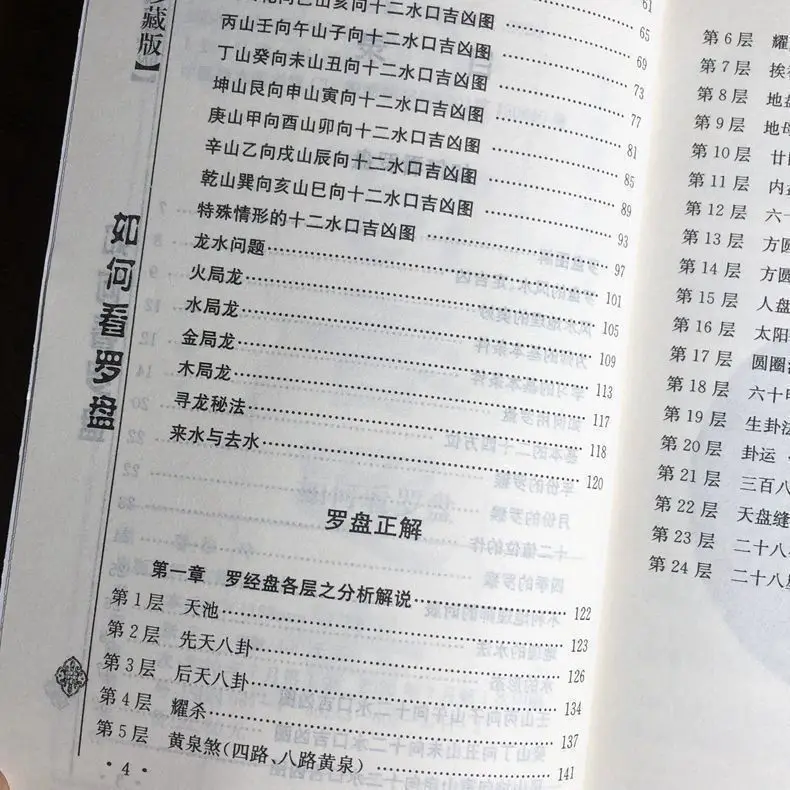 珍藏版】
如何看罗盘
山亥向十二水口吉凶图 69
丙山壬向午山子向十二水口吉凶图 73
丁山癸向未山丑向十二水口吉凶图 77
坤山艮向申山寅向十二水口吉凶图 81
庚山甲向酉山卯向十二水口吉凶图 85
辛山乙向戌山辰向十二水口吉凶图 89
乾山巽向亥山巳向十二水口吉凶图 93
特殊情形的十二水口吉凶图 97
龙水问题 101
火局龙 105
水局龙 109
金局龙 113
木局龙 117
寻龙秘法 118
来水与去水 120
罗盘正解
第一章 罗经盘各层之分析解说 122
第1层 天池 123
第2层 先天八卦 126
第3层 后天八卦 134
第4层 耀杀 137
第5层 黄泉煞(四路、八路黄泉) 141
·4·
第6层 耀
第7层 挨
第8层 地盘
第9层 地母
第10层 廿
第11层 内盘
第12层 六十
第13层 方圆
第14层 方圆
第15层 人盘
第16层 太阳
第17层 圆圈
第18层 六十甲
第19层 生卦法
第20层 卦运
第21层 三百八
第22层 天盘缝
第23层 二十八
第24层 二十八星